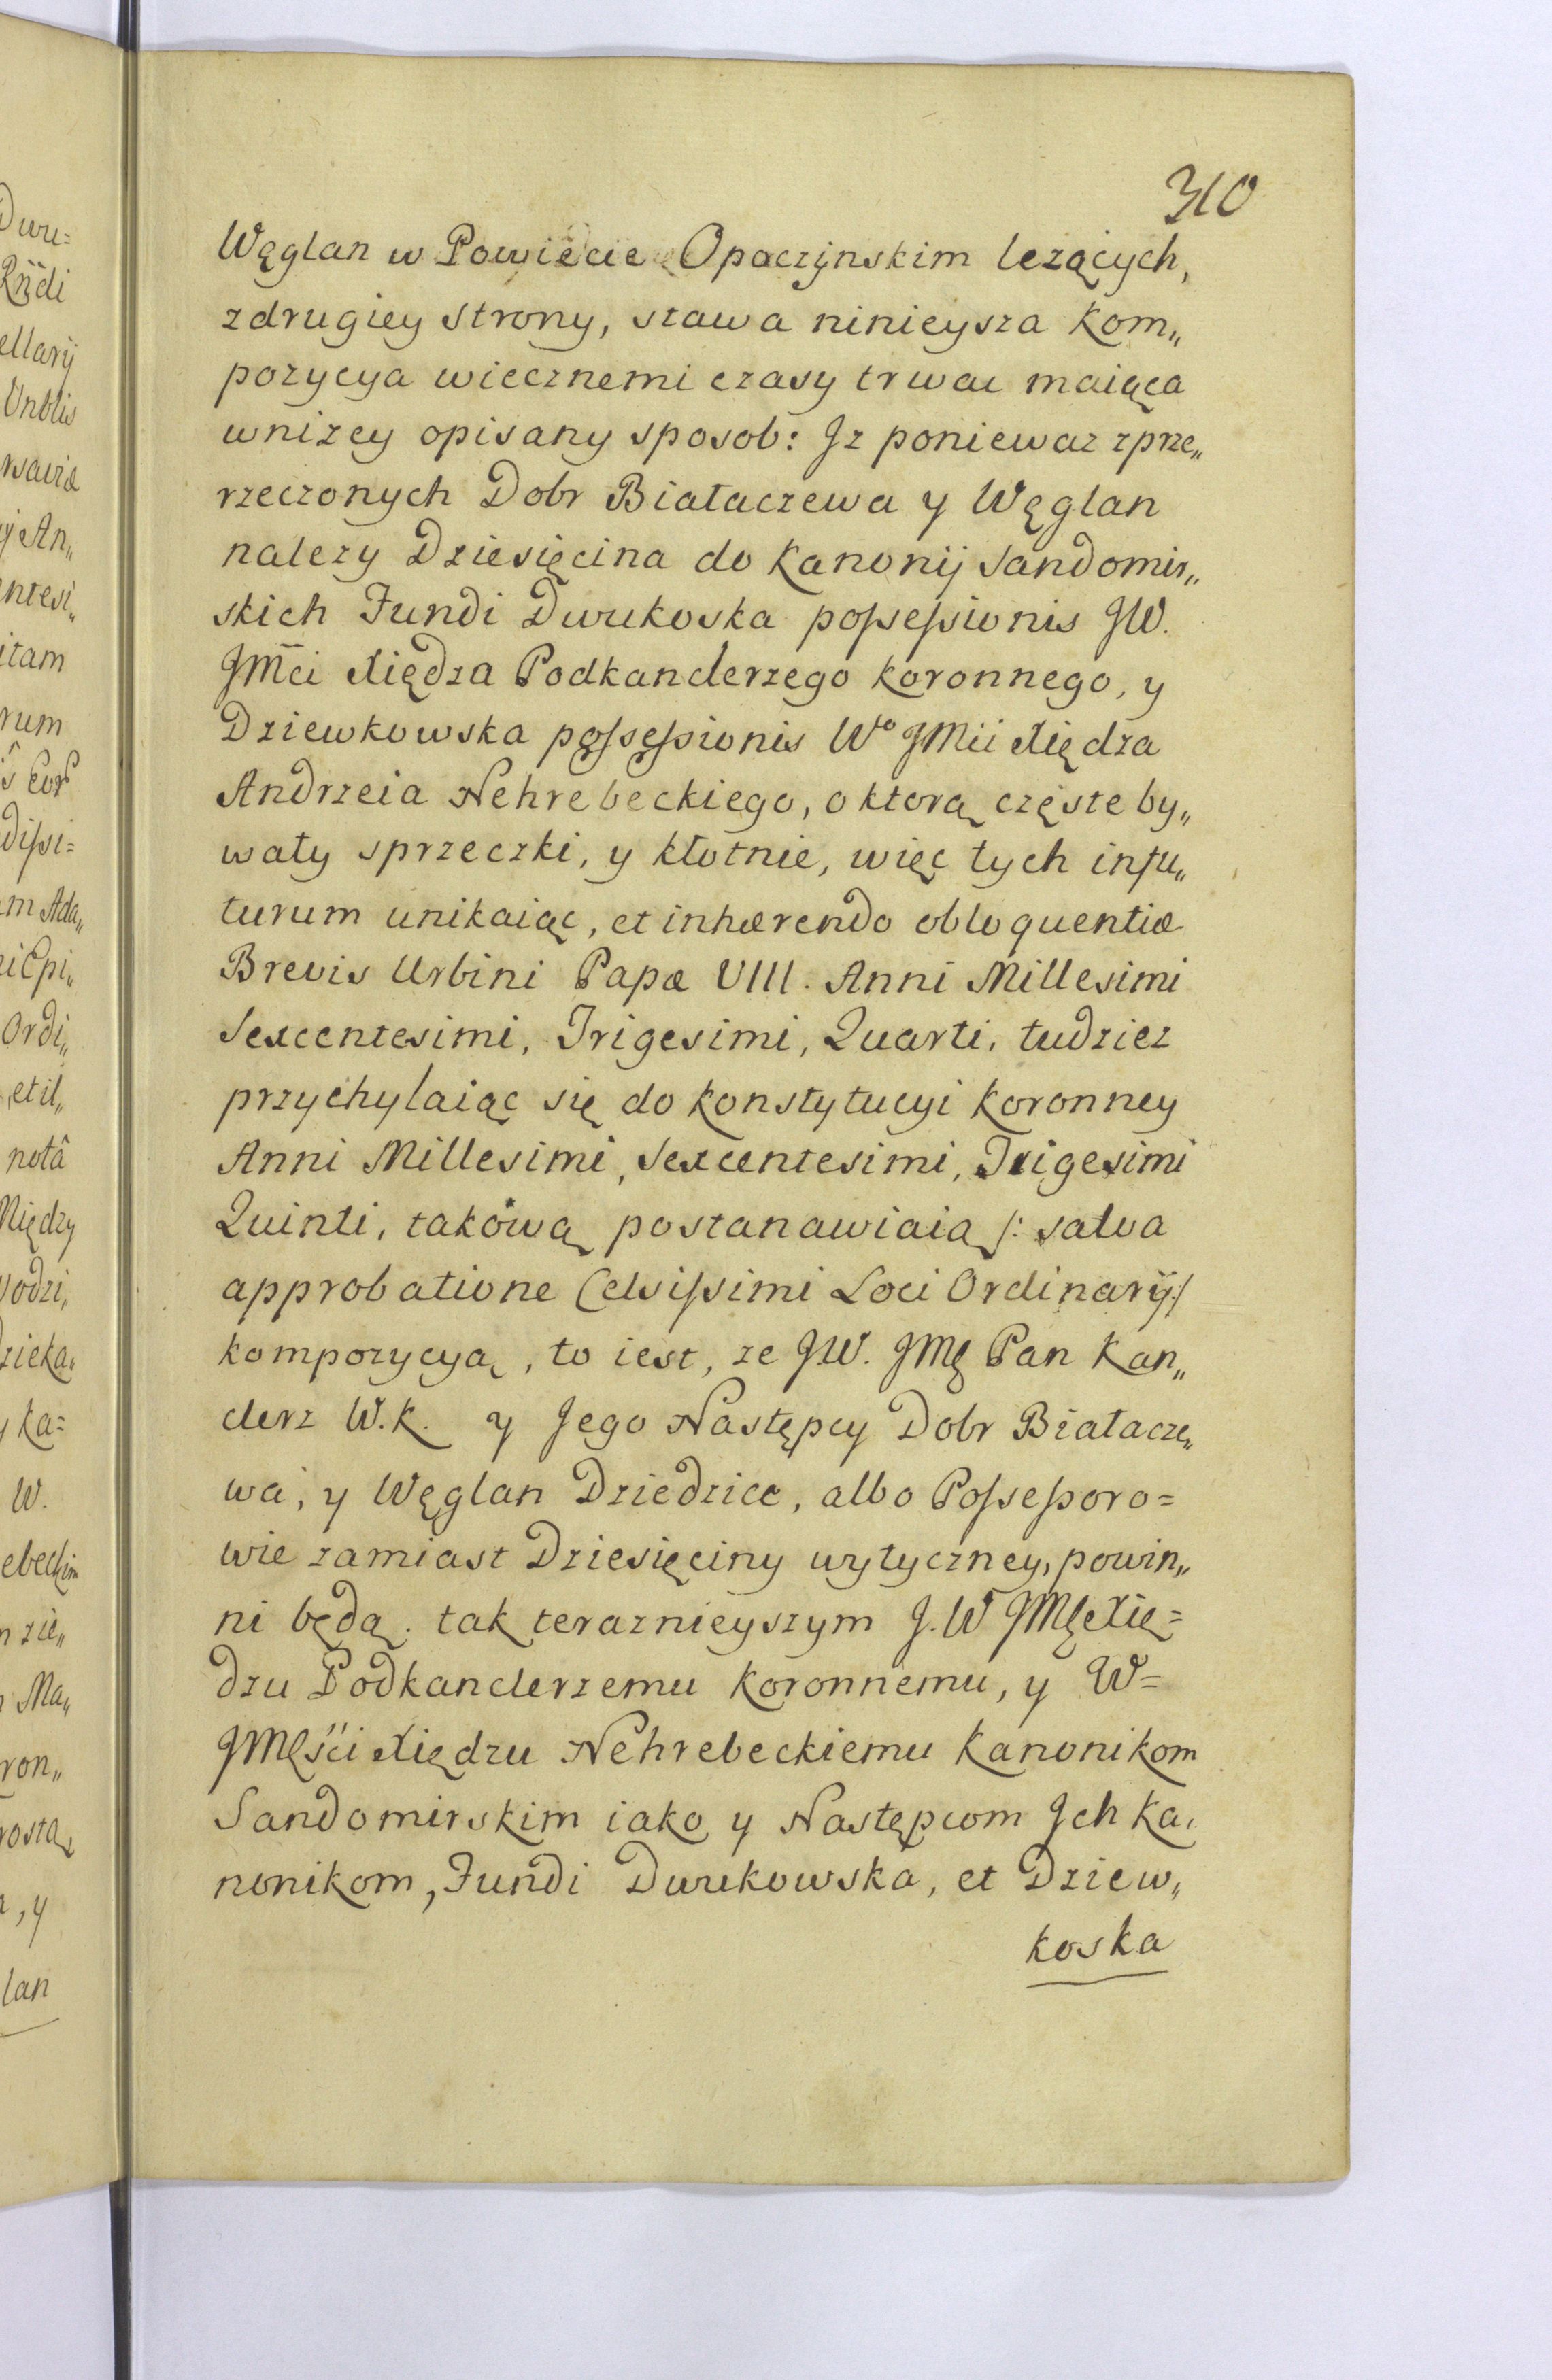 310
Węglan w Powiecie Opaczynskim lezących,
z drugiey strony, stawa ninieysza Kom„
pozycya wiecznemi czasy trwać maiąca
wnizey opisany sposob: Jz poniewaz zprze„
rzeczonych Dobr Białaczewa y Węglan
nalezy Dziesięcina do Kanonij Sandomir„
skich Fundi Dwukoska possessionis JW.
JMci Xiędza Podkanclerzego Koronnego, y
Dziewkowska possessionis Wo JMci Xiędza
Andrzeia Nehrebeckiego, o ktorą częste by„
wały sprzeczki, y kłotnie, więc tych infu„
turum unikaiąc, et inhærendo obloquentiæ
Brevis Urbini Papæ VIII. Anni Millesimi
Sexcentesimi, Trigesimi, Quarti, tudziez
przychylaiąc się do Konstytucyi Koronney
Anni Millesimi, Sexcentesimi, Trigesimi
Quinti, takową postanawiaią /: salva
approbatione Celsissimi Loci Ordinarij :/
kompozycyą, to iest, ze JW. JMę Pan Kan„
clerz W. K. y Jego Następcy Dobr Białacze„
wa, y Węglan Dziedzice, albo Possessoro=
wie zamiast Dziesięciny wytyczney, powin„
ni będą. tak teraznieyszym J. W JMę Xię=
dzu Podkanclerzemu Koronnemu, y W=
JMęści Xiędzu Nehrebeckiemu Kanonikom
Sandomirskim iako y Następcom Jch Ka„
nonikom, Fundi Dwukowska, et Dziew„
koska
Dwu=
ellarij
An„
itam
rum
m Ada„
Ordi„
et il„
notâ
Między
y Ka=
W.
Ma„
ron„
, y
lan